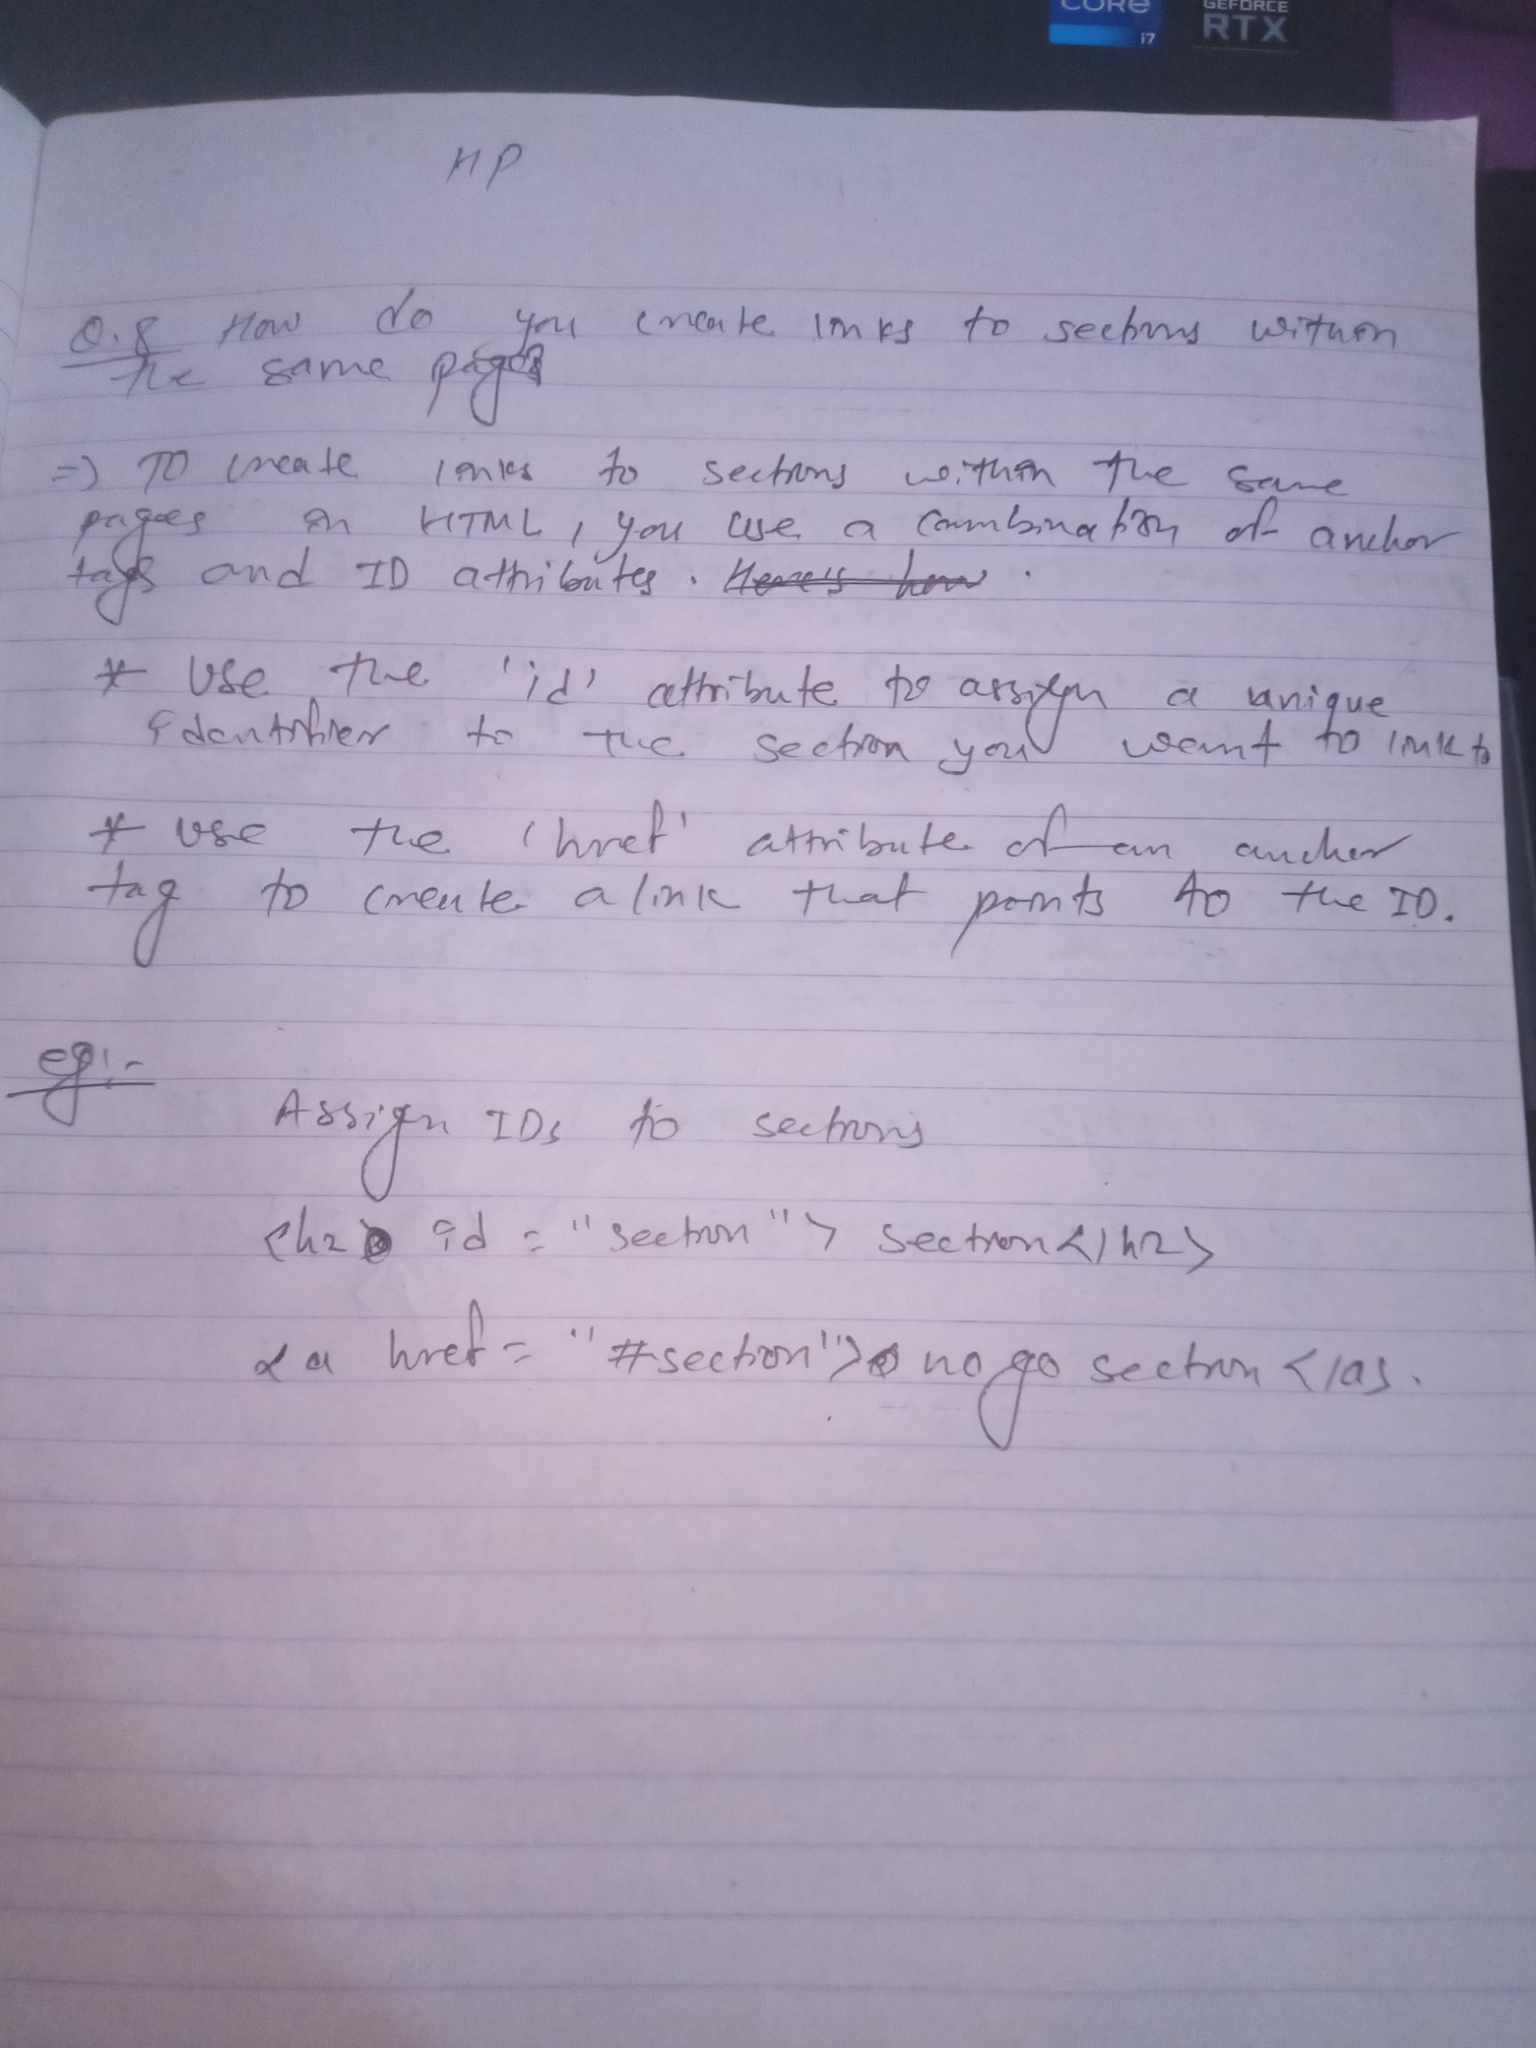 CORE
i7
GEFORCE
RTX
HP
Q.8 How do you create links to sections within
the same page?
=) To create links to sections within the same
pages in HTML, you use a combination of anchor
tags and ID attributes. Here's how .
* Use the 'id' attribute to assign a unique
identifier to the section you want to link to
* Use the 'href' attribute of an anchor
tag to create a link that points to the ID.
eg:-
Assign IDs to sections
<h2 id = "section"> section</h2>
<a href = "#section"> no go section </a>.